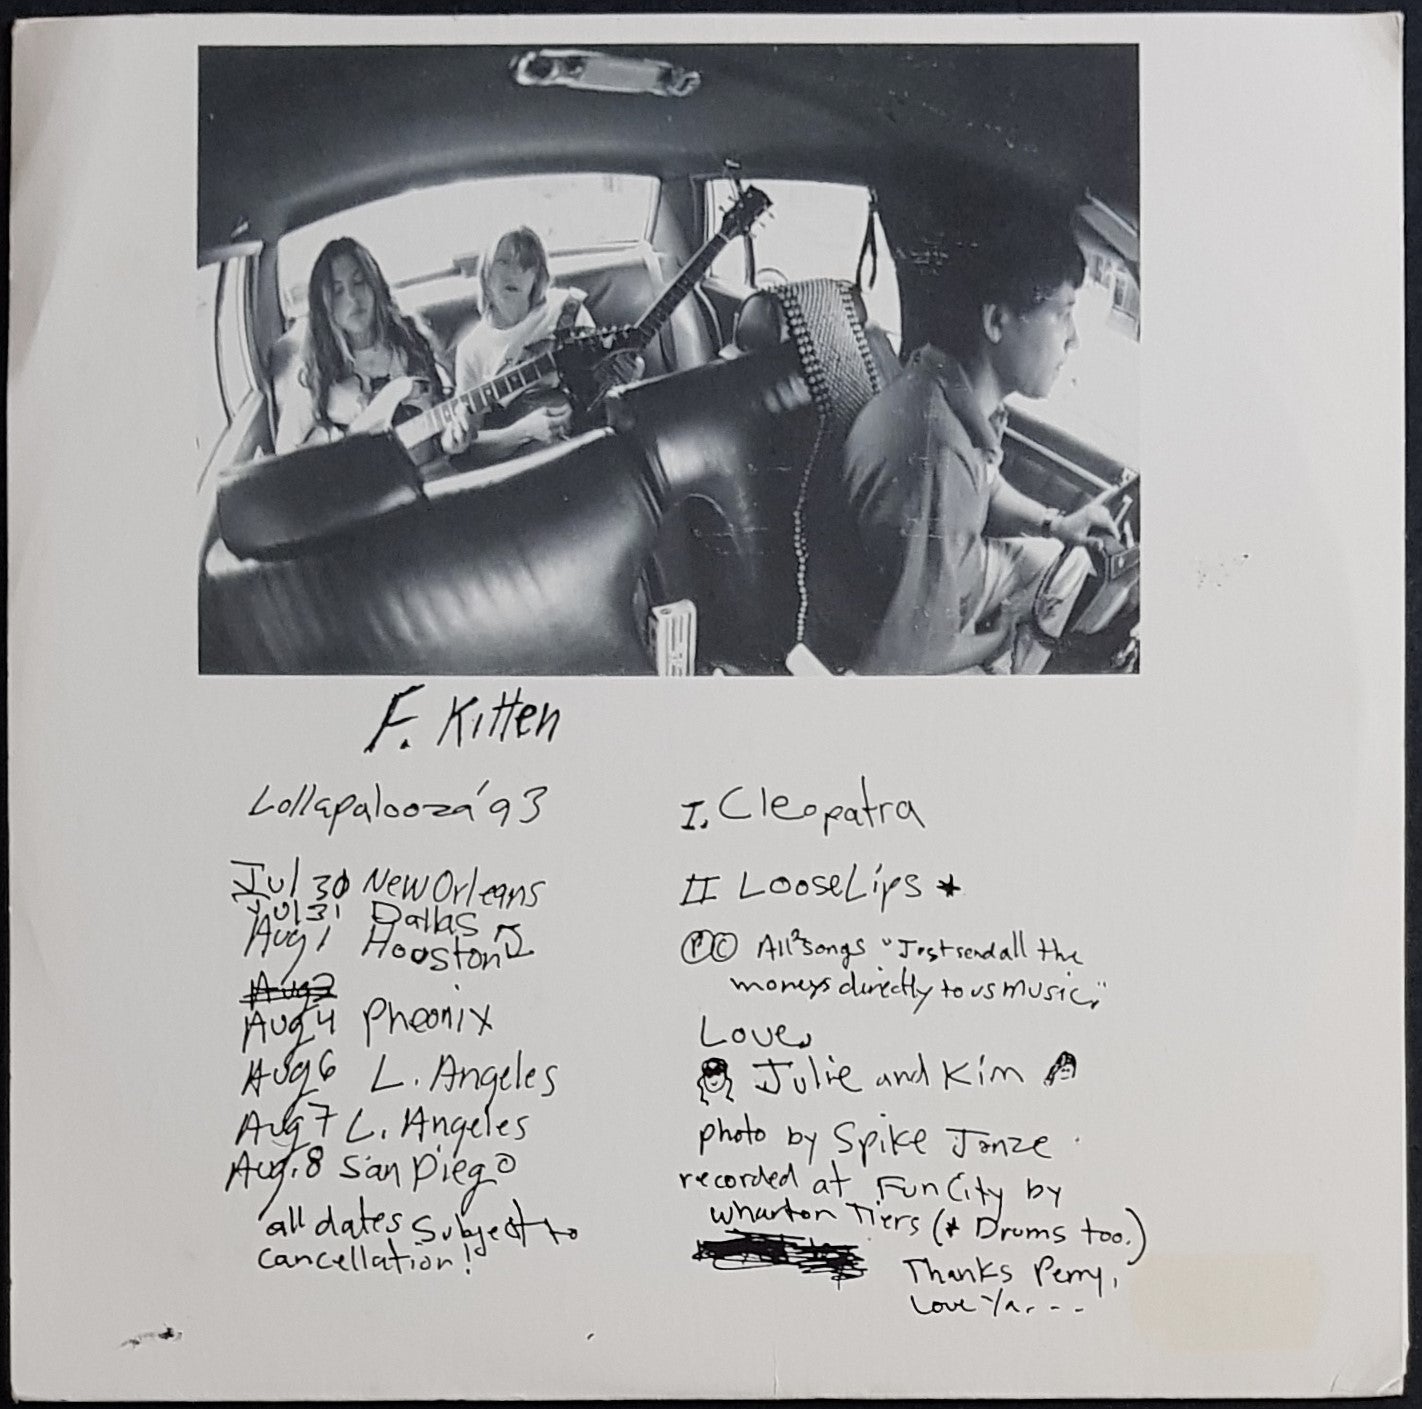 F. Kitten
Lollapalooza '93
Jul 30 New Orleans
Jul 31 Dallas
Aug 1 Houston
Aug 2
Aug 4 Pheonix
Aug 6 L. Angeles
Aug 7 L. Angeles
Aug. 8 San Diego
all dates Subject to
cancellation!
I. Cleopatra
II Loose Lips *
Ⓟ© All 2 songs "Just send all the
moneys directly to us music,"
Love,
Julie and Kim
photo by Spike Jonze
recorded at Fun City by
Wharton Tiers (* Drums too.)
Thanks Perry,
Love Ya. - -